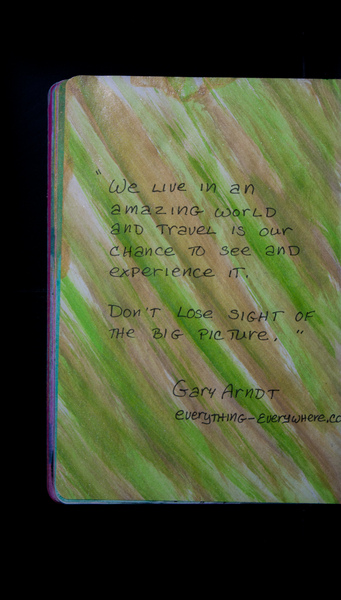 "We Live in an
amazing world
and Travel is our
chance to see and
experience it.
Don't lose sight of
the big picture."
Gary Arndt
everything-everywhere.co